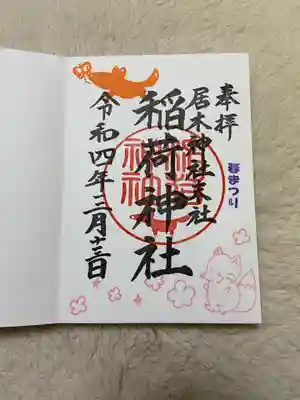 奉拝
居木神社末社
春まつり
稲荷神社
令和四年三月十三日